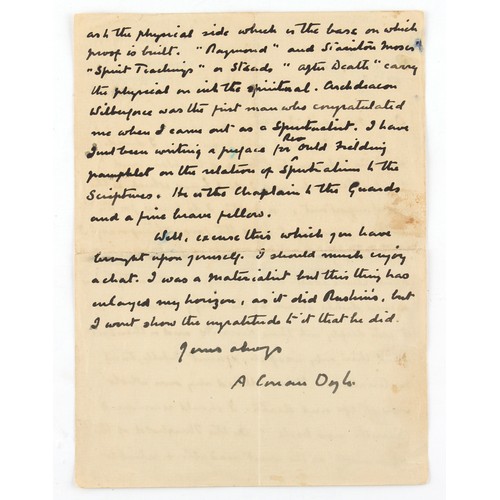 ask the physical side which is the base on which
proof is built. "Raymond" and Stainton Moses
"Spirit Teachings" or Steads "After Death" carry
the physical on into the spiritual. Archdeacon
Wilberforce was the first man who congratulated
me when I came out as a Spiritualist. I have
just been writing a preface for Rev Fielding
pamphlet on the relation of Spiritualism to the
Scriptures. He is the Chaplain to the Guards
and a fine brave fellow.
Well, excuse this which you have
brought upon yourself. I should much enjoy
a chat. I was a materialist but this thing has
enlarged my horizon, as it did Ruskin's, but
I wont show the ingratitude to it that he did.
Yours always
A Conan Doyle